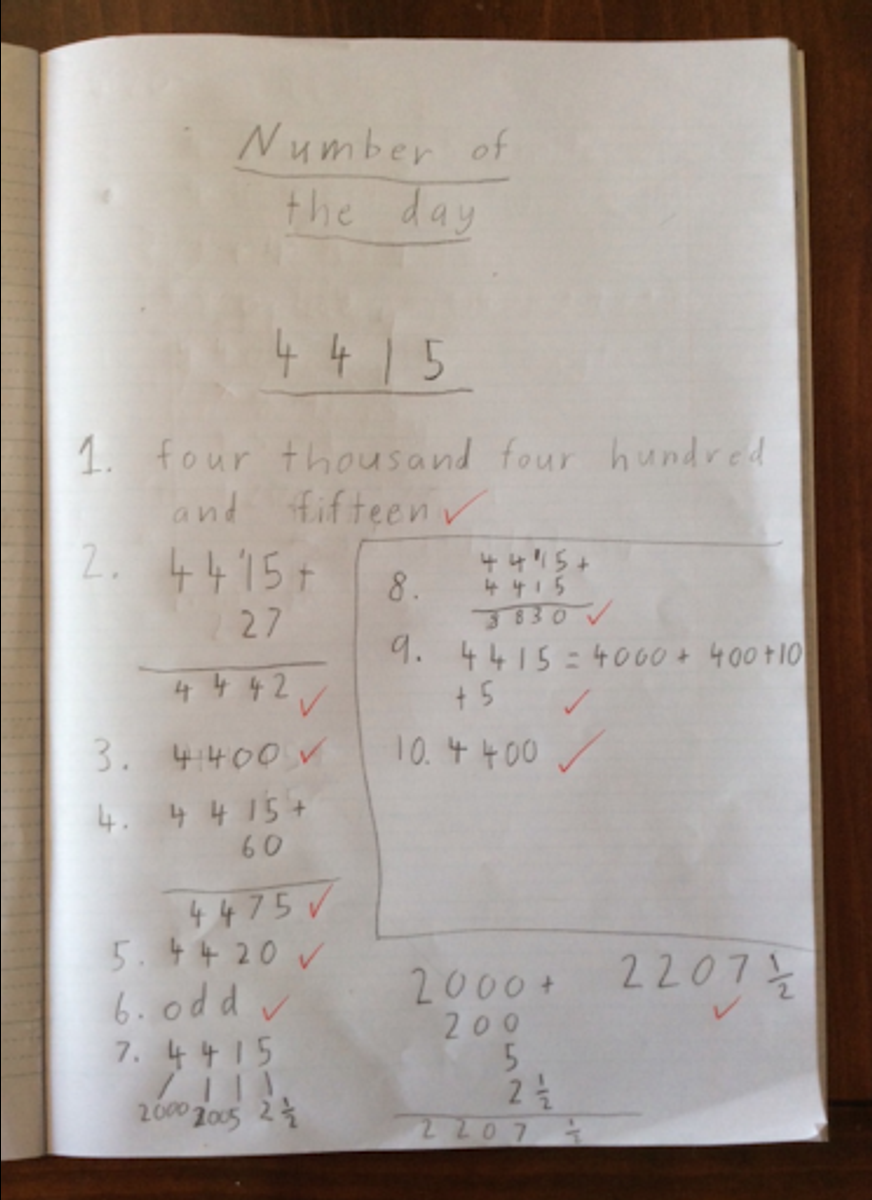 Number of
the day
4 4 1 5
1. four thousand four hundred
and fifteen ✓
2. 4 4 '1 5 +
27
4 4 4 2 ✓
3. 4400 ✓
4. 4 4 1 5 +
60
4 4 7 5 ✓
5. 4 4 2 0 ✓
6. odd ✓
7. 4 4 1 5
2000 200 5 2 ½
8. 4 4 '1 5 +
4 4 1 5
8 8 3 0 ✓
9. 4 4 1 5 = 4000 + 400 + 10
+ 5 ✓
10. 4 400 ✓
2000 +
200
5
2 ½
2 2 0 7 ½
2207 ½ ✓